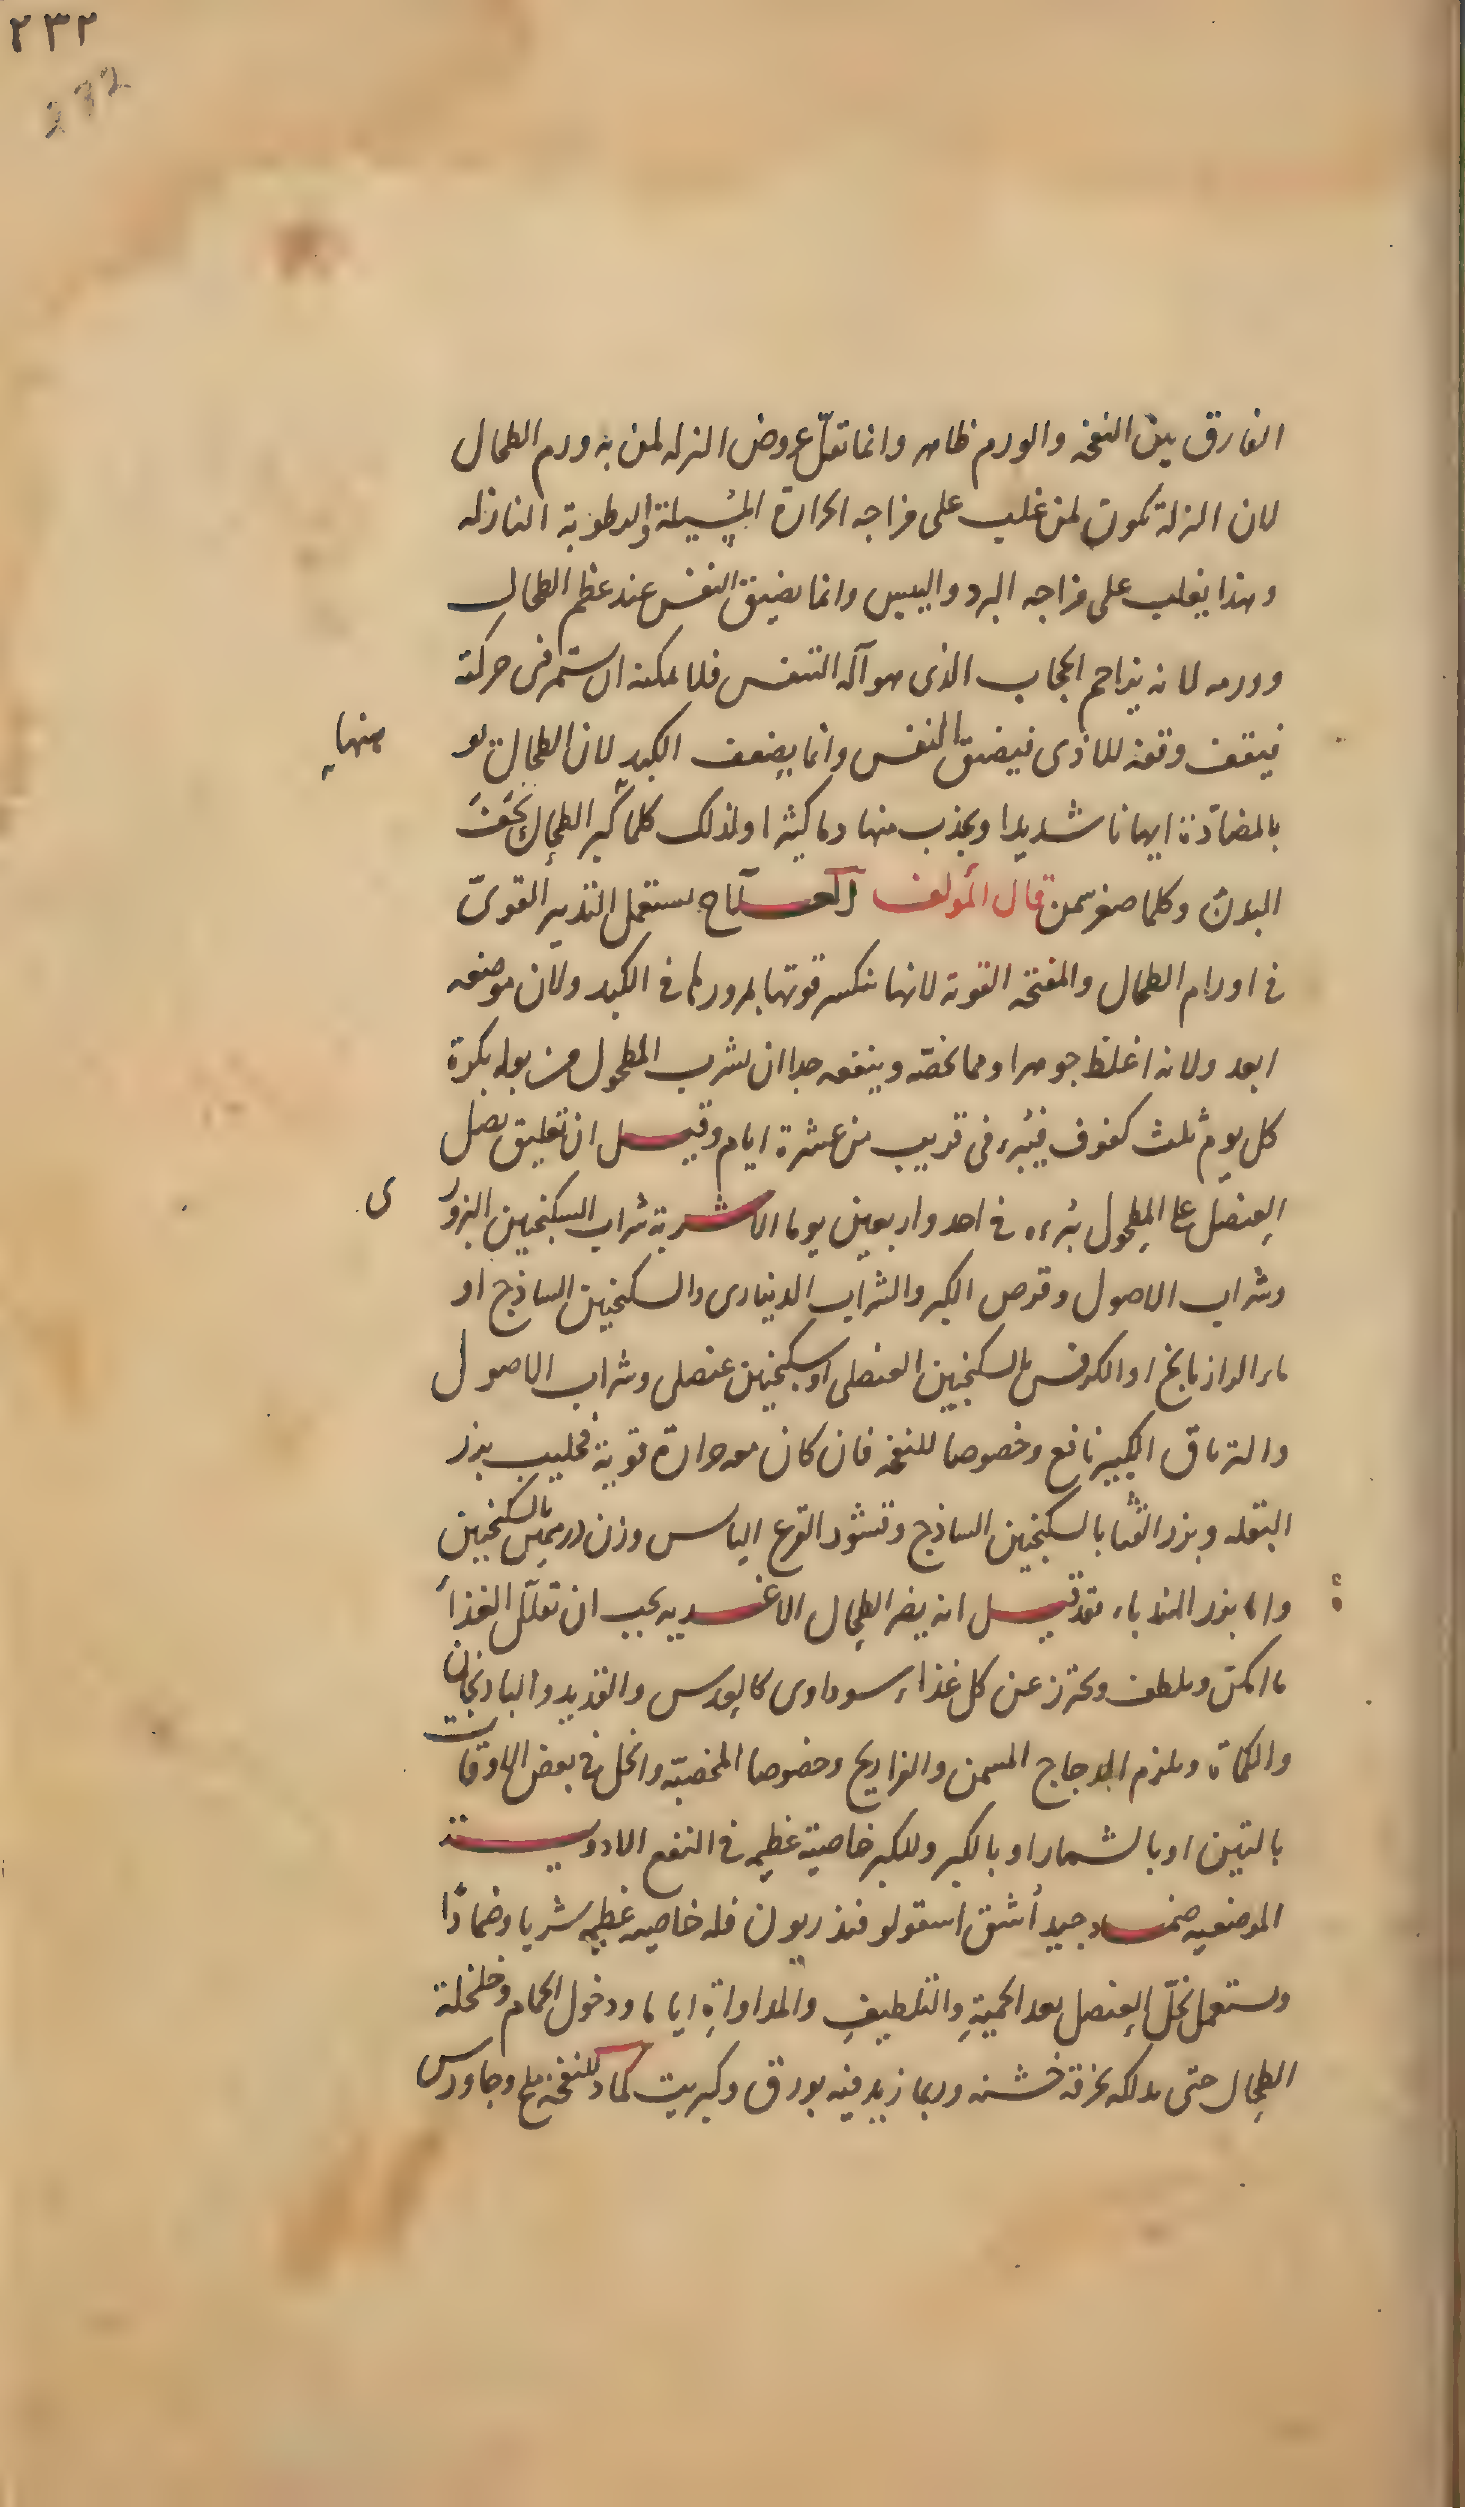 ٢٣٢
232
الفارق بين النفخه والورم ظاهر وانما تقلّ عروض النزله لمن به ورم الطحال
لان النزلة تكون لمن غلب على مزاجه الحرارة المُسِيلة والرطوبة النازله
وهذا يغلب على مزاجه البرد واليبس وانما يضيق النفس عند عظم الطحال
وورمه لانه يزاحم الحجاب الذى هو آلة التنفس فلا يمكنه ان يستمر فى حركته
فيقف وقفه للاذى فيضيق النفس وانما يضعف الكبد لان الطحال يو
منها
بالمضادّة ايهانا شديدا ويجذب منها دما كثيرا ولذلك كلما كبر الطحال نحف
البدن وكلما صغر سمن قال المؤلف العلاج يستعمل التدبير القوىّ
فى اورام الطحال والمفتحه القويه لانها تنكسر قوتها بمرورها فى الكبد ولان موضعه
ابعد ولانه اغلظ جوهرا ومما يخصّه وينفعه جدا ان يشرب المطحول من بوله بكرة
كل يوم ثلث كفوف فيبرء فى قريب من عشرة ايام وقيل ان تعليق بصل
العنصل على المطحول يبرءه فى احد واربعين يوما الاشربة شراب السكنجبين البزور
ى
وشراب الاصول وقرص الكبر والشراب الدينارى والسكنجبين الساذج او
ماء الرازيانج او الكرفس بالسكنجبين العنصلى او سكنجبين عنصلى وشراب الاصول
والترياق الكبير نافع وخصوصا للنفخه فان كان معه حرارة قوية فحليب بزر
البقله وبزر القثا بالسكنجبين الساذج وقشور القرع اليابس وزن درهمين بالسكنجبين
واما بزر الهندباء فقد قيل انه يضر الطحال الاغذيه يجب ان تقلّل الغذاء
ما امكن ويلطف ويحترز عن كل غذاء سوداوى كالعدس والقديد والباذنجان
والكمأة ويلزم الدجاج المسمن والفراريج وخصوصا المخصبّه والخل فى بعض الاوقات
بالتين او بالشمار او بالكبر وللكبر خاصية عظيمه فى النفع الادوية
الموضعيه ضماد جيد أشق اسقولوفندريون فله خاصيه عظيمه شربا وضمادًا
ويستعمل بخلّ العنصل بعد الحمية والتلطيف والمداواة اياما ودخول الحمام وخلخلة
الطحال حتى يدلكه بخرقه خشنه وربما زيد فيه بورق وكبريت كماد للنفخه ملح وجاورس